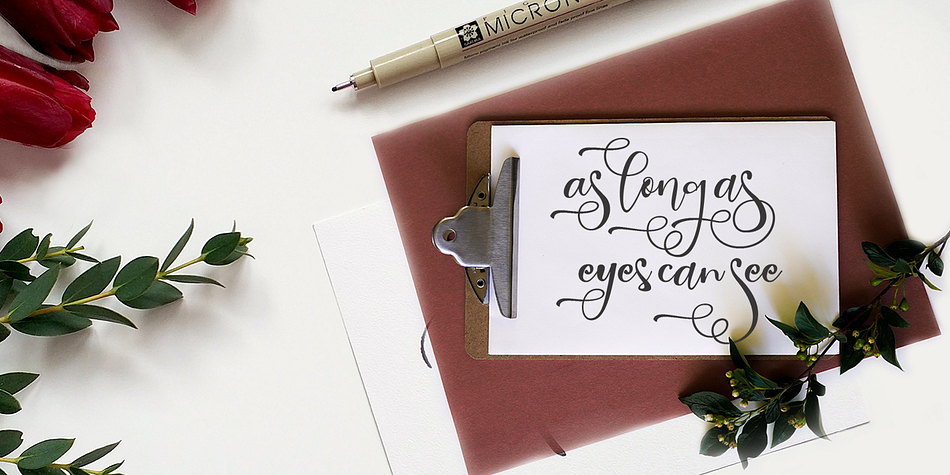 MICRON
as long as
eyes can see